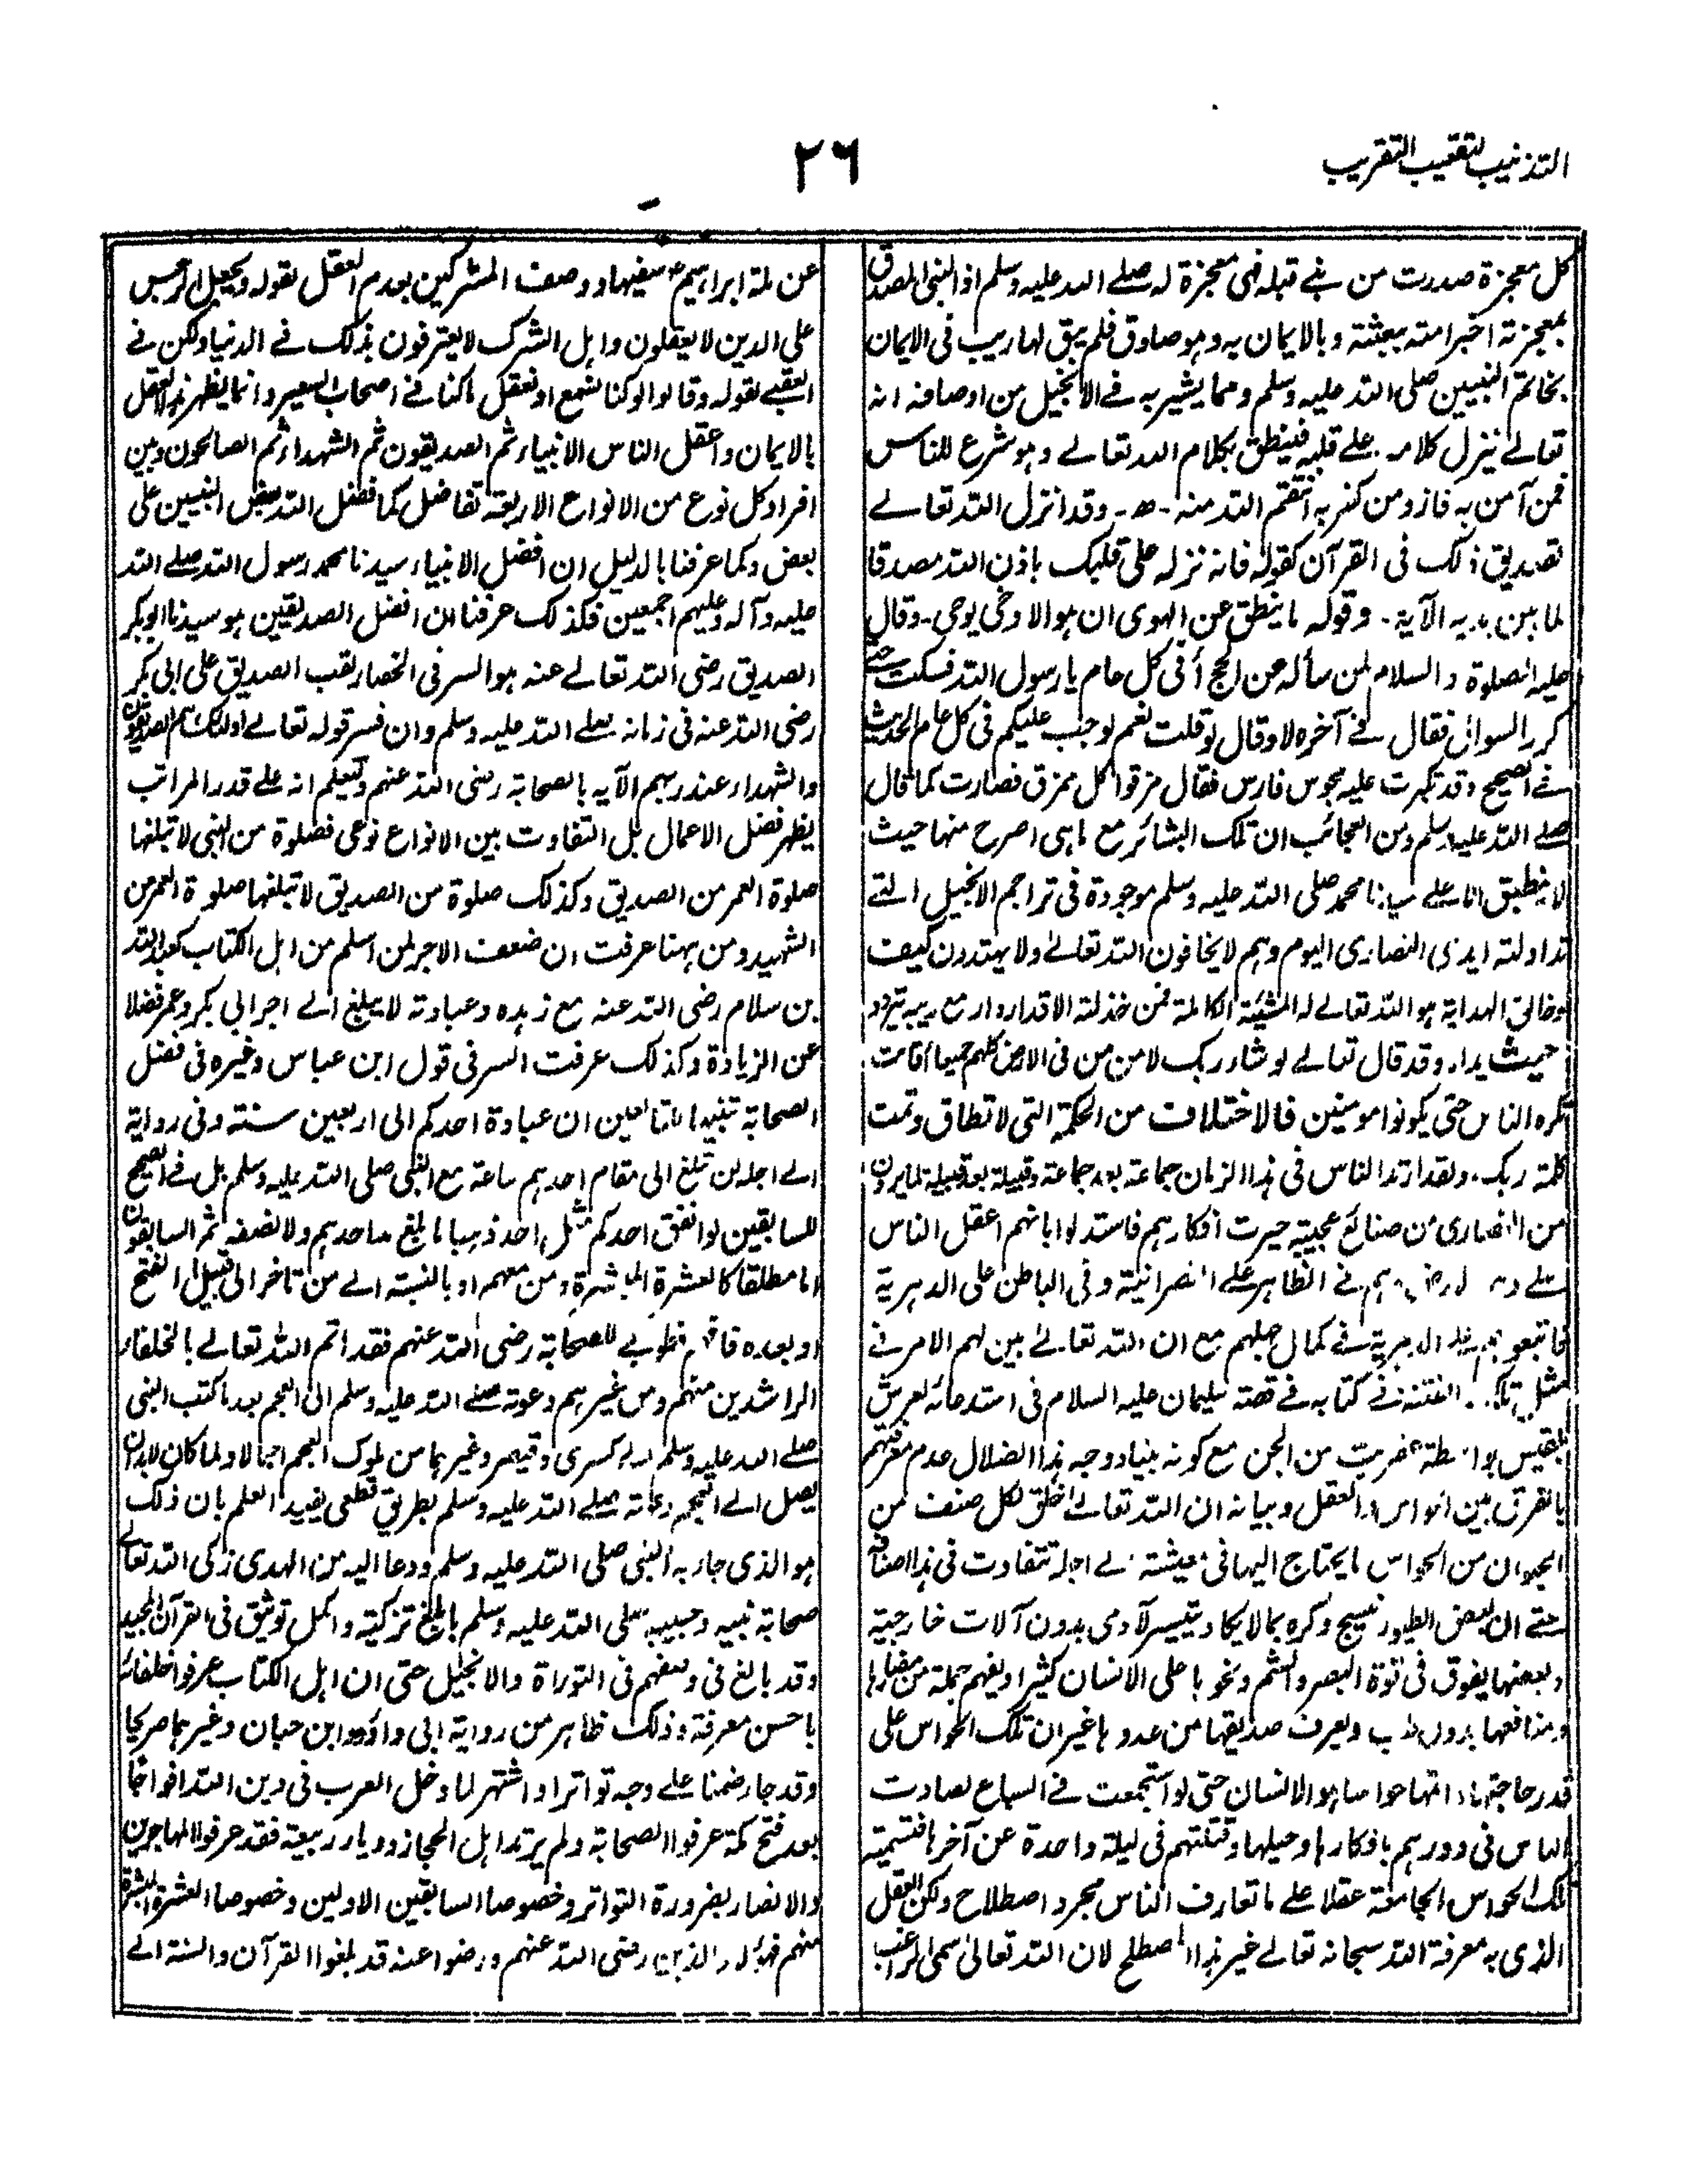 التذنيب لتعقيب التقريب
٢٦
كل معجزة صدرت من نبے قبله فهى معجزة له صلے الله عليه وسلم اذ النبى المصدق
بمعجزته اخبر امته ببعثته وبالايمان به وهو صادق فلم يبق لها ريب فى الايمان
بخاتم النبيين صلى الله عليه وسلم ومما يشير به فے الانجيل من اوصافه انه
تعالے ينزل كلامه علے قلبه فينطق بكلام الله تعالے وهو شرع للناس
فمن آمن به فاز ومن كفر به انتقم الله منه - ه - وقد انزل الله تعالے
تصديق ذلك فى القرآن كقوله فانه نزله على قلبك باذن الله مصدقا
لما بين يديه الآية - وقوله ما ينطق عن الهوى ان هو الا وحى يوحى - وقال
عليه الصلوة والسلام لمن سأله عن الحج أفى كل عام يا رسول الله فسكت حتى
كرر السوال فقال فے آخره لا وقال لو قلت نعم لوجب عليكم فى كل عام الحديث
فے الصحيح وقد تكبرت عليه مجوس فارس فقال مزقوا كل ممزق فصارت كما قال
صلے الله عليه وسلم ومن العجائب ان تلك البشائر مع ما هى اصرح منها حيث
لا ينطبق الا علے سيدنا محمد صلى الله عليه وسلم موجودة فى تراجم الانجيل التے
تداولته ايدى النصارى اليوم وهم لا يخافون الله تعالے ولا يهتدون كيف
وخالق الهداية هو الله تعالے له المشيئة الكاملة فمن خذلته الاقدار دار مع ريبه يتردد
حيث يدار وقد قال تعالے لو شاء ربك لامن من فى الارض كلهم جميعا أفانت
تكره الناس حتى يكونوا مومنين فالاختلاف من الحكمة التى لا تطاق وتمت
كلمة ربك. ولقد ارتد الناس فى هذا الزمان جماعة بعد جماعة وقبيلة بعد قبيلة لما يرون
من النصارى من صنائع عجيبة حيرت افكارهم فاستدلوا بانهم اعقل الناس
علے هم فے الظاهر علے النصرانية وفى الباطن على الدهرية
فاتبعوهم الدهرية فے كمال جهلهم مع ان الله تعالے بين لهم الامر فے
مثل تلك الفتنة فے كتابه فے قصة سليمان عليه السلام فى استدعائه لعرش
بلقيس بواسطة عفريت من الجن مع كونه بنياد وجه هذا الضلال عدم معرفتهم
بالفرق بين الحواس والعقل وبيانه ان الله تعالے خلق لكل صنف من
الحيوان من الحواس ما يحتاج اليها فى معيشته لے اجله تتفاوت فى هذا اصنافه
حتے ان بعض الطيور نسيج وكره بما لا يكاد يتيسر لآدمى بدون آلات خارجية
وبعضها يفوق فى قوة البصر والشم ونحوها على الانسان كثيرا ويفهم جملة من مضارها
ومنافعها بدون طب ويعرف صديقها من عدوها غير ان تلك الحواس على
قدر حاجتها انتها حواسا هو الانسان حتى لو استجمعت فے السباع لصادت
الناس فى دورهم بافكارها وحيلها وقتلتهم فى ليلة واحدة عن آخرها فتسمية
تلك الحواس الجامعة عقلا علے ما تعارف الناس مجرد اصطلاح ولكن العقل
الذى به معرفة الله سبحانه تعالے غير هذا المصطلح لان الله تعالى سمى الراغب
عن ملة ابراهيم سفيها ووصف المشركين بعدم العقل لقوله ويجعل الرجس
على الذين لا يعقلون واهل الشرك لا يعترفون بذلك فے الدنيا ولكن فے
العقبے لقوله وقالوا لو كنا نسمع او نعقل ما كنا فے اصحاب السعير وانما يظهر نور العقل
بالايمان واعقل الناس الانبياء ثم الصديقون ثم الشهداء ثم الصالحون وبين
افراد كل نوع من الانواع الاربعة تفاضل كما فضل الله بعض النبيين على
بعض وكما عرفنا بالدليل ان افضل الانبياء سيدنا محمد رسول الله صلے الله
عليه وآله وعليهم اجمعين فكذلك عرفنا ان افضل الصديقين هو سيدنا ابو بكر
الصديق رضى الله تعالے عنه هو السر فى انحصار لقب الصديق على ابى بكر
رضى الله عنه فى زمانه صلے الله عليه وسلم وان فسر قوله تعالے اولئك هم الصديقون
والشهداء عند ربهم الآيه بالصحابة رضى الله عنهم وليعلم انه علے قدر المراتب
يظهر فضل الاعمال بل التفاوت بين الانواع نوعى فصلوة من النبى لا تبلغها
صلوة العمر من الصديق وكذلك صلوة من الصديق لا تبلغها صلوة العمر من
الشهيد ومن ههنا عرفت ان ضعف الاجر لمن اسلم من اهل الكتاب كعبد الله
بن سلام رضى الله عنه مع زهده وعبادته لا يبلغ الے اجر ابى بكر وعمر فضلا
عن الزيادة وكذلك عرفت السر فى قول ابن عباس وغيره فى فضل
الصحابة تنبيها للتابعين ان عبادة احدكم الى اربعين سنة وفى رواية
الے اجله لن تبلغ الى مقام احدهم ساعة مع النبى صلى الله عليه وسلم بل فے الصحيح
للسابقين لو انفق احدكم مثل احد ذهبا ما بلغ مد احدهم ولا نصيفه ثم السابقون
اما مطلقا كالعشرة المبشرة ومن معهم او بالنسبة الے من تاخر الى قبيل الفتح
او بعده فطوبے للصحابة رضى الله عنهم فقد اتم الله تعالے بالخلفاء
الراشدين منهم ومن غيرهم دعوته صلے الله عليه وسلم الى العجم بعد ما كتب النبى
صلے الله عليه وسلم الے كسرى وقيصر وغيرهما من ملوك العجم اجمالا ولما كان لابد ان
يصل الے العجم دعائه صلے الله عليه وسلم بطريق قطعى يفيد العلم بان ذلك
هو الذى جاء به النبى صلى الله عليه وسلم ودعا اليه من الهدى زكى الله تعالے
صحابة نبيه وحبيبه صلى الله عليه وسلم بابلغ تزكية واكمل توثيق فى القرآن المجيد
وقد بالغ فى وصفهم فى التوراة والانجيل حتى ان اهل الكتاب عرفوا خلفائه
باحسن معرفة وذلك ظاهر من رواية ابى داؤد وابن حبان وغيرهما صريحا
وقد جاء ضمنا علے وجه تواتر او اشتهر لما دخل العرب فى دين الله افواجا
بعد فتح مكة عرفوا الصحابة ولم يرتد اهل الحجاز وديار ربيعة فقد عرفوا المهاجرين
والانصار بضرورة التواتر وخصوصا السابقين الاولين وخصوصا العشرة المبشرة
منهم فهؤلاء الذين رضى الله عنهم ورضوا عنه قد بلغوا القرآن والسنة الے